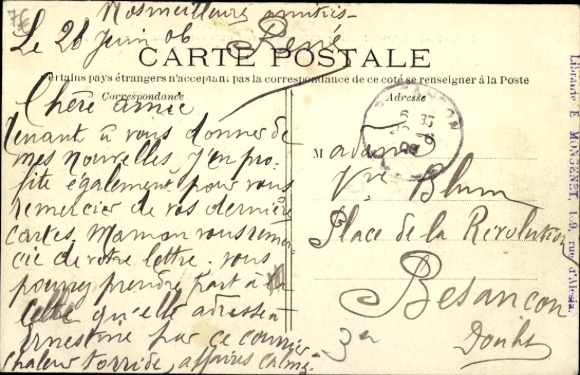 7€
Nos meilleures amitiés
Le 26 Juin 06 René
CARTE POSTALE
Certains pays étrangers n'acceptant pas la correspondance de ce coté se renseigner à la Poste
Correspondance
Chère amie
Tenant à vous donner de
mes nouvelles j'en pro-
fite également pour vous
remercier de vos dernière
cartes. Maman vous remer-
cie de votre lettre. vous
pourrez prendre part à la
lettre qu'elle adresse à
Ernestine par ce courrier
chaleur torride, affaires calmes
Adresse
BESANCON
Madame
Vve Blum
Place de la Révolution
Besançon
Doubs
Librairie E. MONGENET, 129, rue d'Alésia.